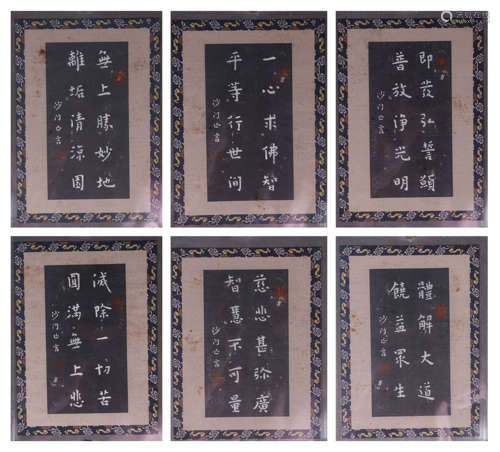 無上勝妙地
離垢清涼園
沙门亡言
一心求佛智
平等行世间
沙门亡言
即發弘誓願
普放淨光明
沙门亡言
滅除一切苦
圓滿無上悲
沙门亡言
慈悲甚弥廣
智慧不可量
沙门亡言
體解大道
饒益眾生
沙门亡言